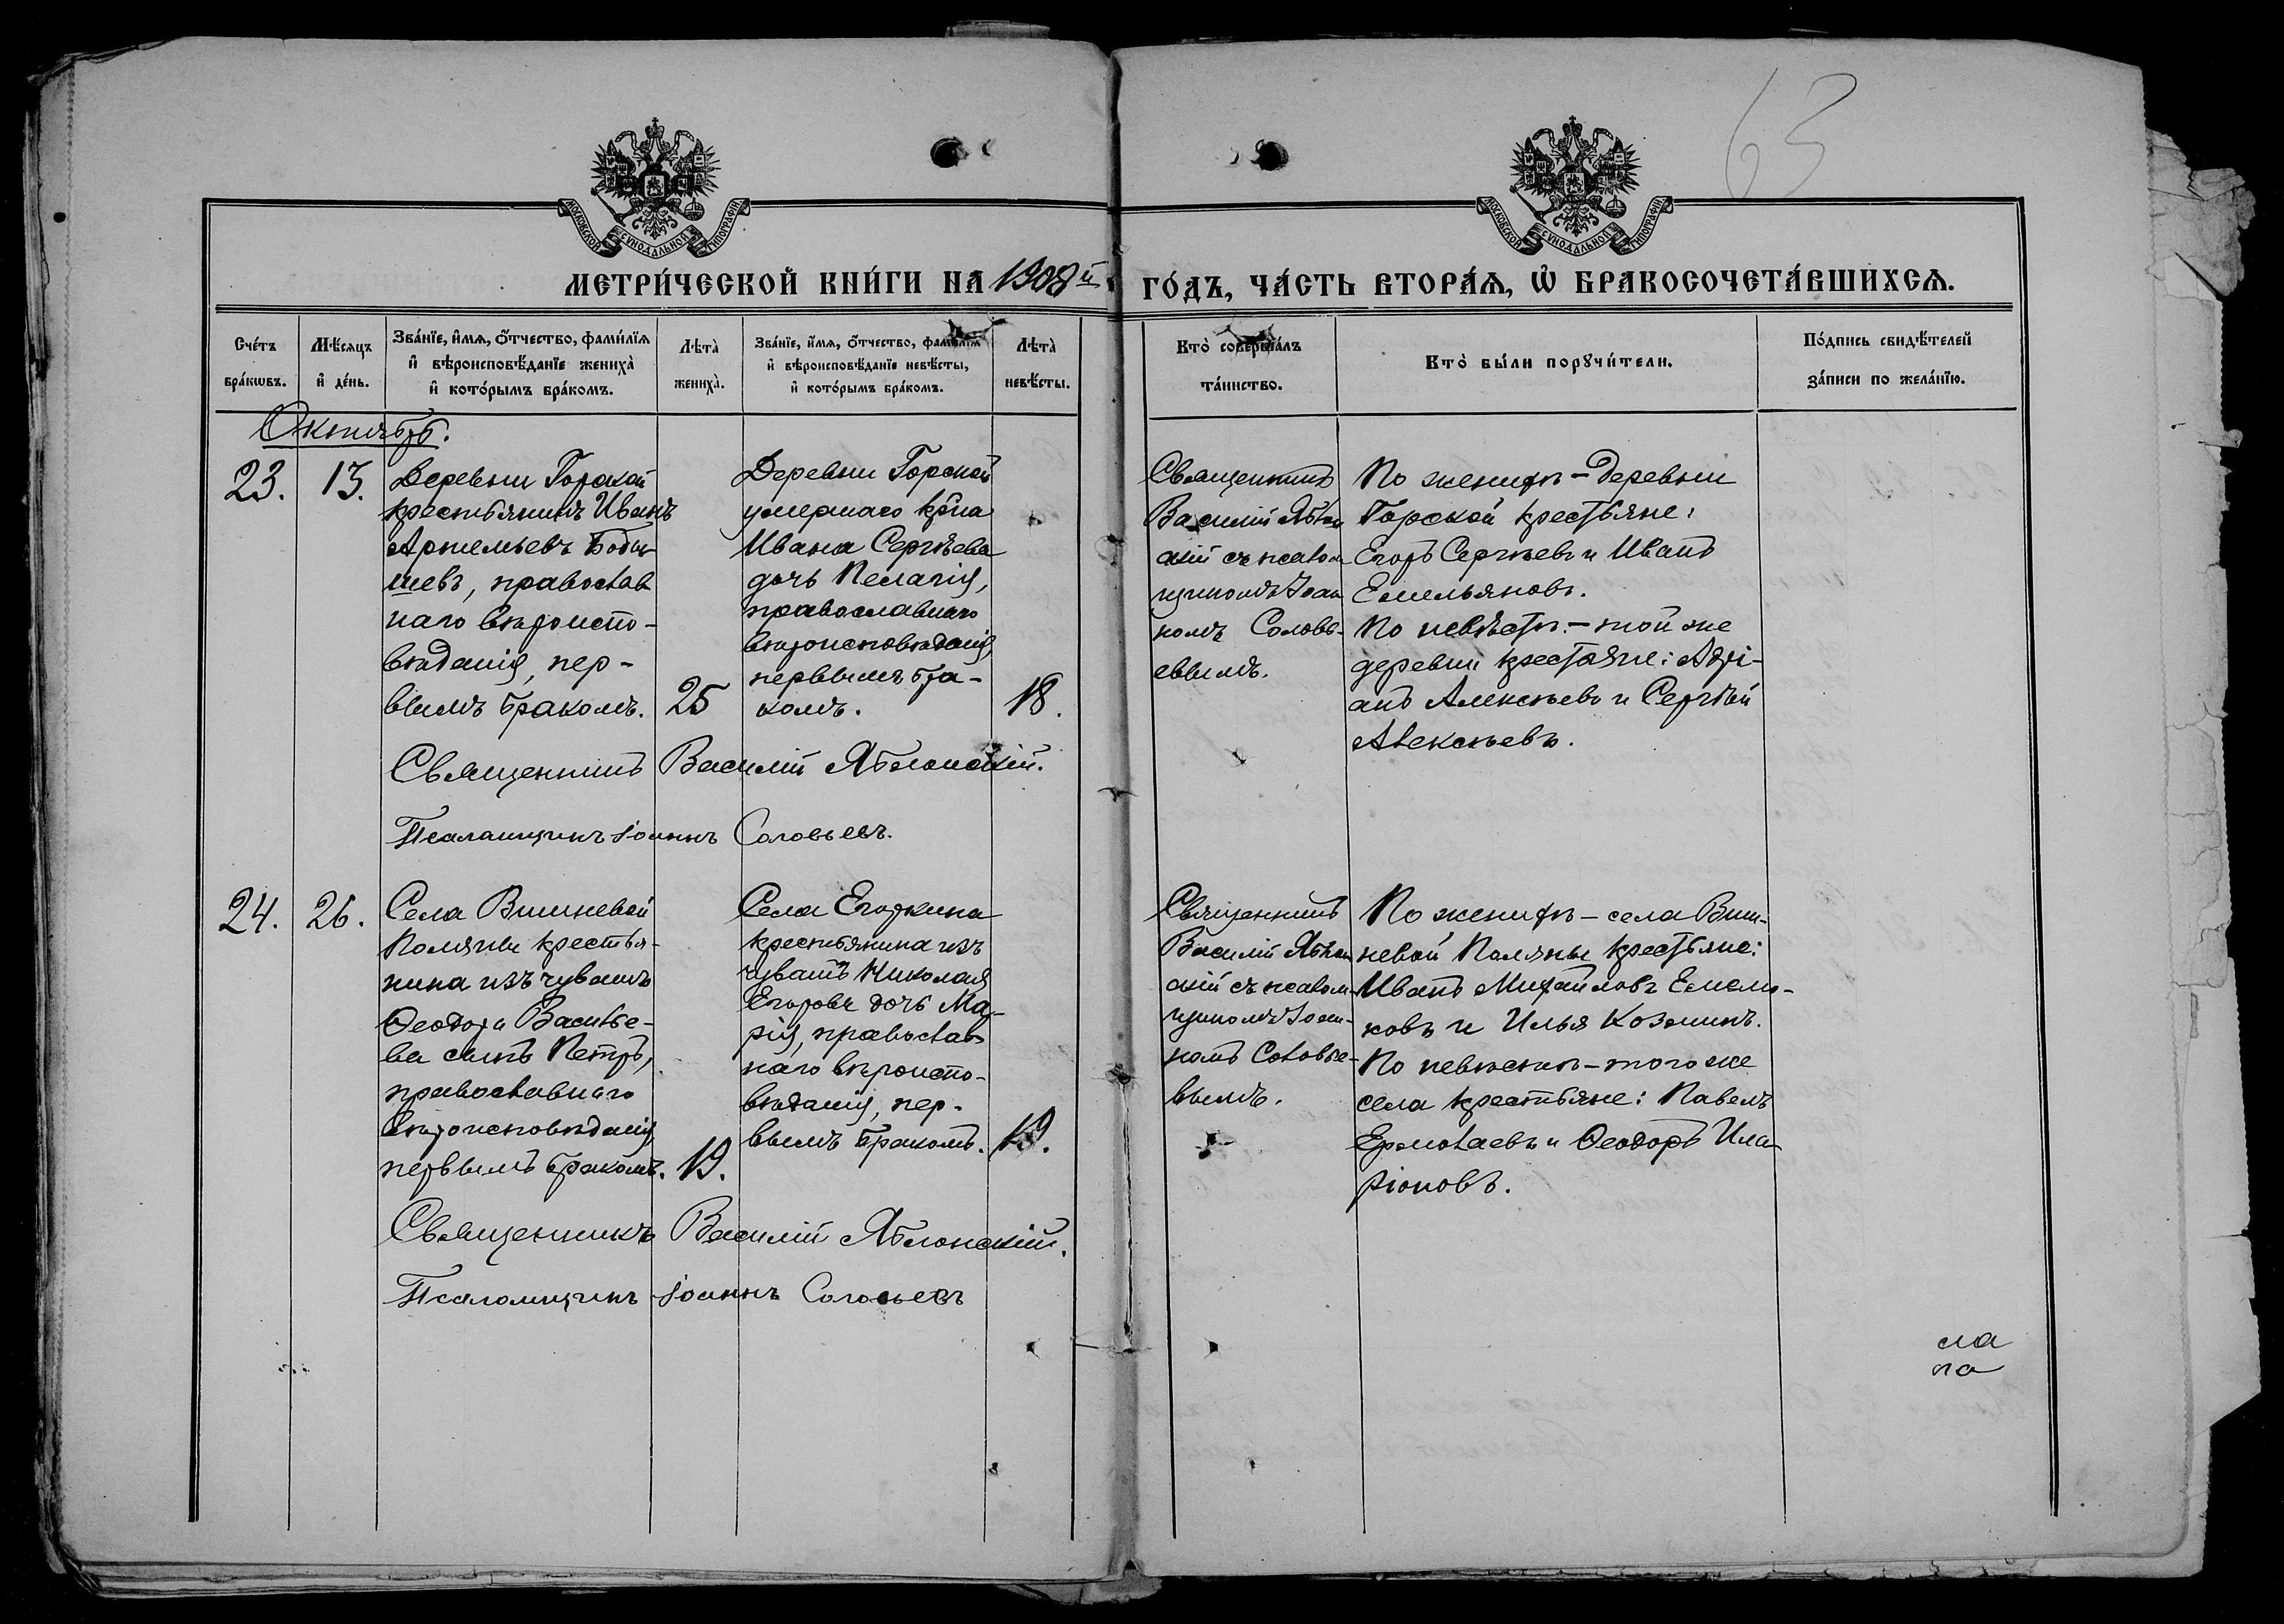 63
МОСКОВСКОЙ СѴНОДАЛЬНОЙ ТИПОГРАФІИ
МОСКОВСКОЙ СѴНОДАЛЬНОЙ ТИПОГРАФІИ
МЕТРИ́ЧЕСКОЙ КНИ́ГИ НА 1908й ГО́ДЪ, ЧА́СТЬ ВТОРА́Ѧ, Ѡ҆ БРАКОСОЧЕТА́ВШИХСѦ.
Сче́тъ бра́кѡвъ.
Мѣ́сяцъ и҆ де́нь.
Зва́нїе, и҆́мѧ, ѻ҆́тчество, фами́лїѧ
и҆ вѣроисповѣ́данїе жениха̀
и҆ кото́рымъ бра́комъ.
Лѣта̀ жениха̀.
Зва́нїе, и҆́мѧ, ѻ҆́тчество, фами́лїѧ
и҆ вѣроисповѣ́данїе невѣ́сты,
и҆ кото́рымъ бра́комъ.
Лѣта̀ невѣ́сты.
Кто̀ соверша́лъ
та́инство.
Кто̀ бы́ли порꙋчи́тели.
По́дпись свидѣ́телей
за́писи по жела́нїю.
Октябрь.
23.
13.
Деревни Горской
крестьянинъ Иванъ
Артемьевъ
шевъ, православ
наго вѣроиспо-
вѣданія, пер-
вымъ бракомъ.
25
Деревни Горской
умершаго кр̃на
Ивана Сергѣева
дочь Пелагія,
православнаго
вѣроисповѣданія,
первымъ бра-
комъ.
18.
Священникъ
Василій Яблон
скій съ псалом
щикомъ Іоан
номъ Соловь-
евымъ.
По женихѣ - Деревни
Горской крестьяне:
Егоръ Сергѣевъ и Иванъ
Емельяновъ.
По невѣстѣ: - той же
деревни крестьяне: Адрі-
анъ Алексѣевъ и Сергѣй
Алексѣевъ.
Священникъ Василій Яблонскій.
Псаломщикъ Іоаннъ Соловьевъ.
24.
26.
Села Вишневой
Поляны крестья-
нина изъ чувашъ
Ѳеодора Василье-
ва сынъ Петръ,
православнаго
вѣроисповѣданія,
первымъ бракомъ.
19.
Села Егоркина
крестьянина изъ
чувашъ Николая
Егорова дочь Ма-
рія, православ
наго вѣроиспо-
вѣданія, пер-
вымъ бракомъ.
19.
Священникъ
Василій Яблон
скій съ псалом-
щикомъ Іоан-
номъ Соловье-
вымъ.
По женихѣ - села Виш-
невой Поляны крестьяне:
Иванъ Михайловъ Емель-
ковъ и Илья Козьминъ.
По невѣстѣ - того же
села крестьяне: Павелъ
Ермолаевъ и Ѳеодоръ Ила-
ріоновъ.
Священникъ Василій Яблонскій.
Псаломщикъ Іоаннъ Соловьевъ
ла
па